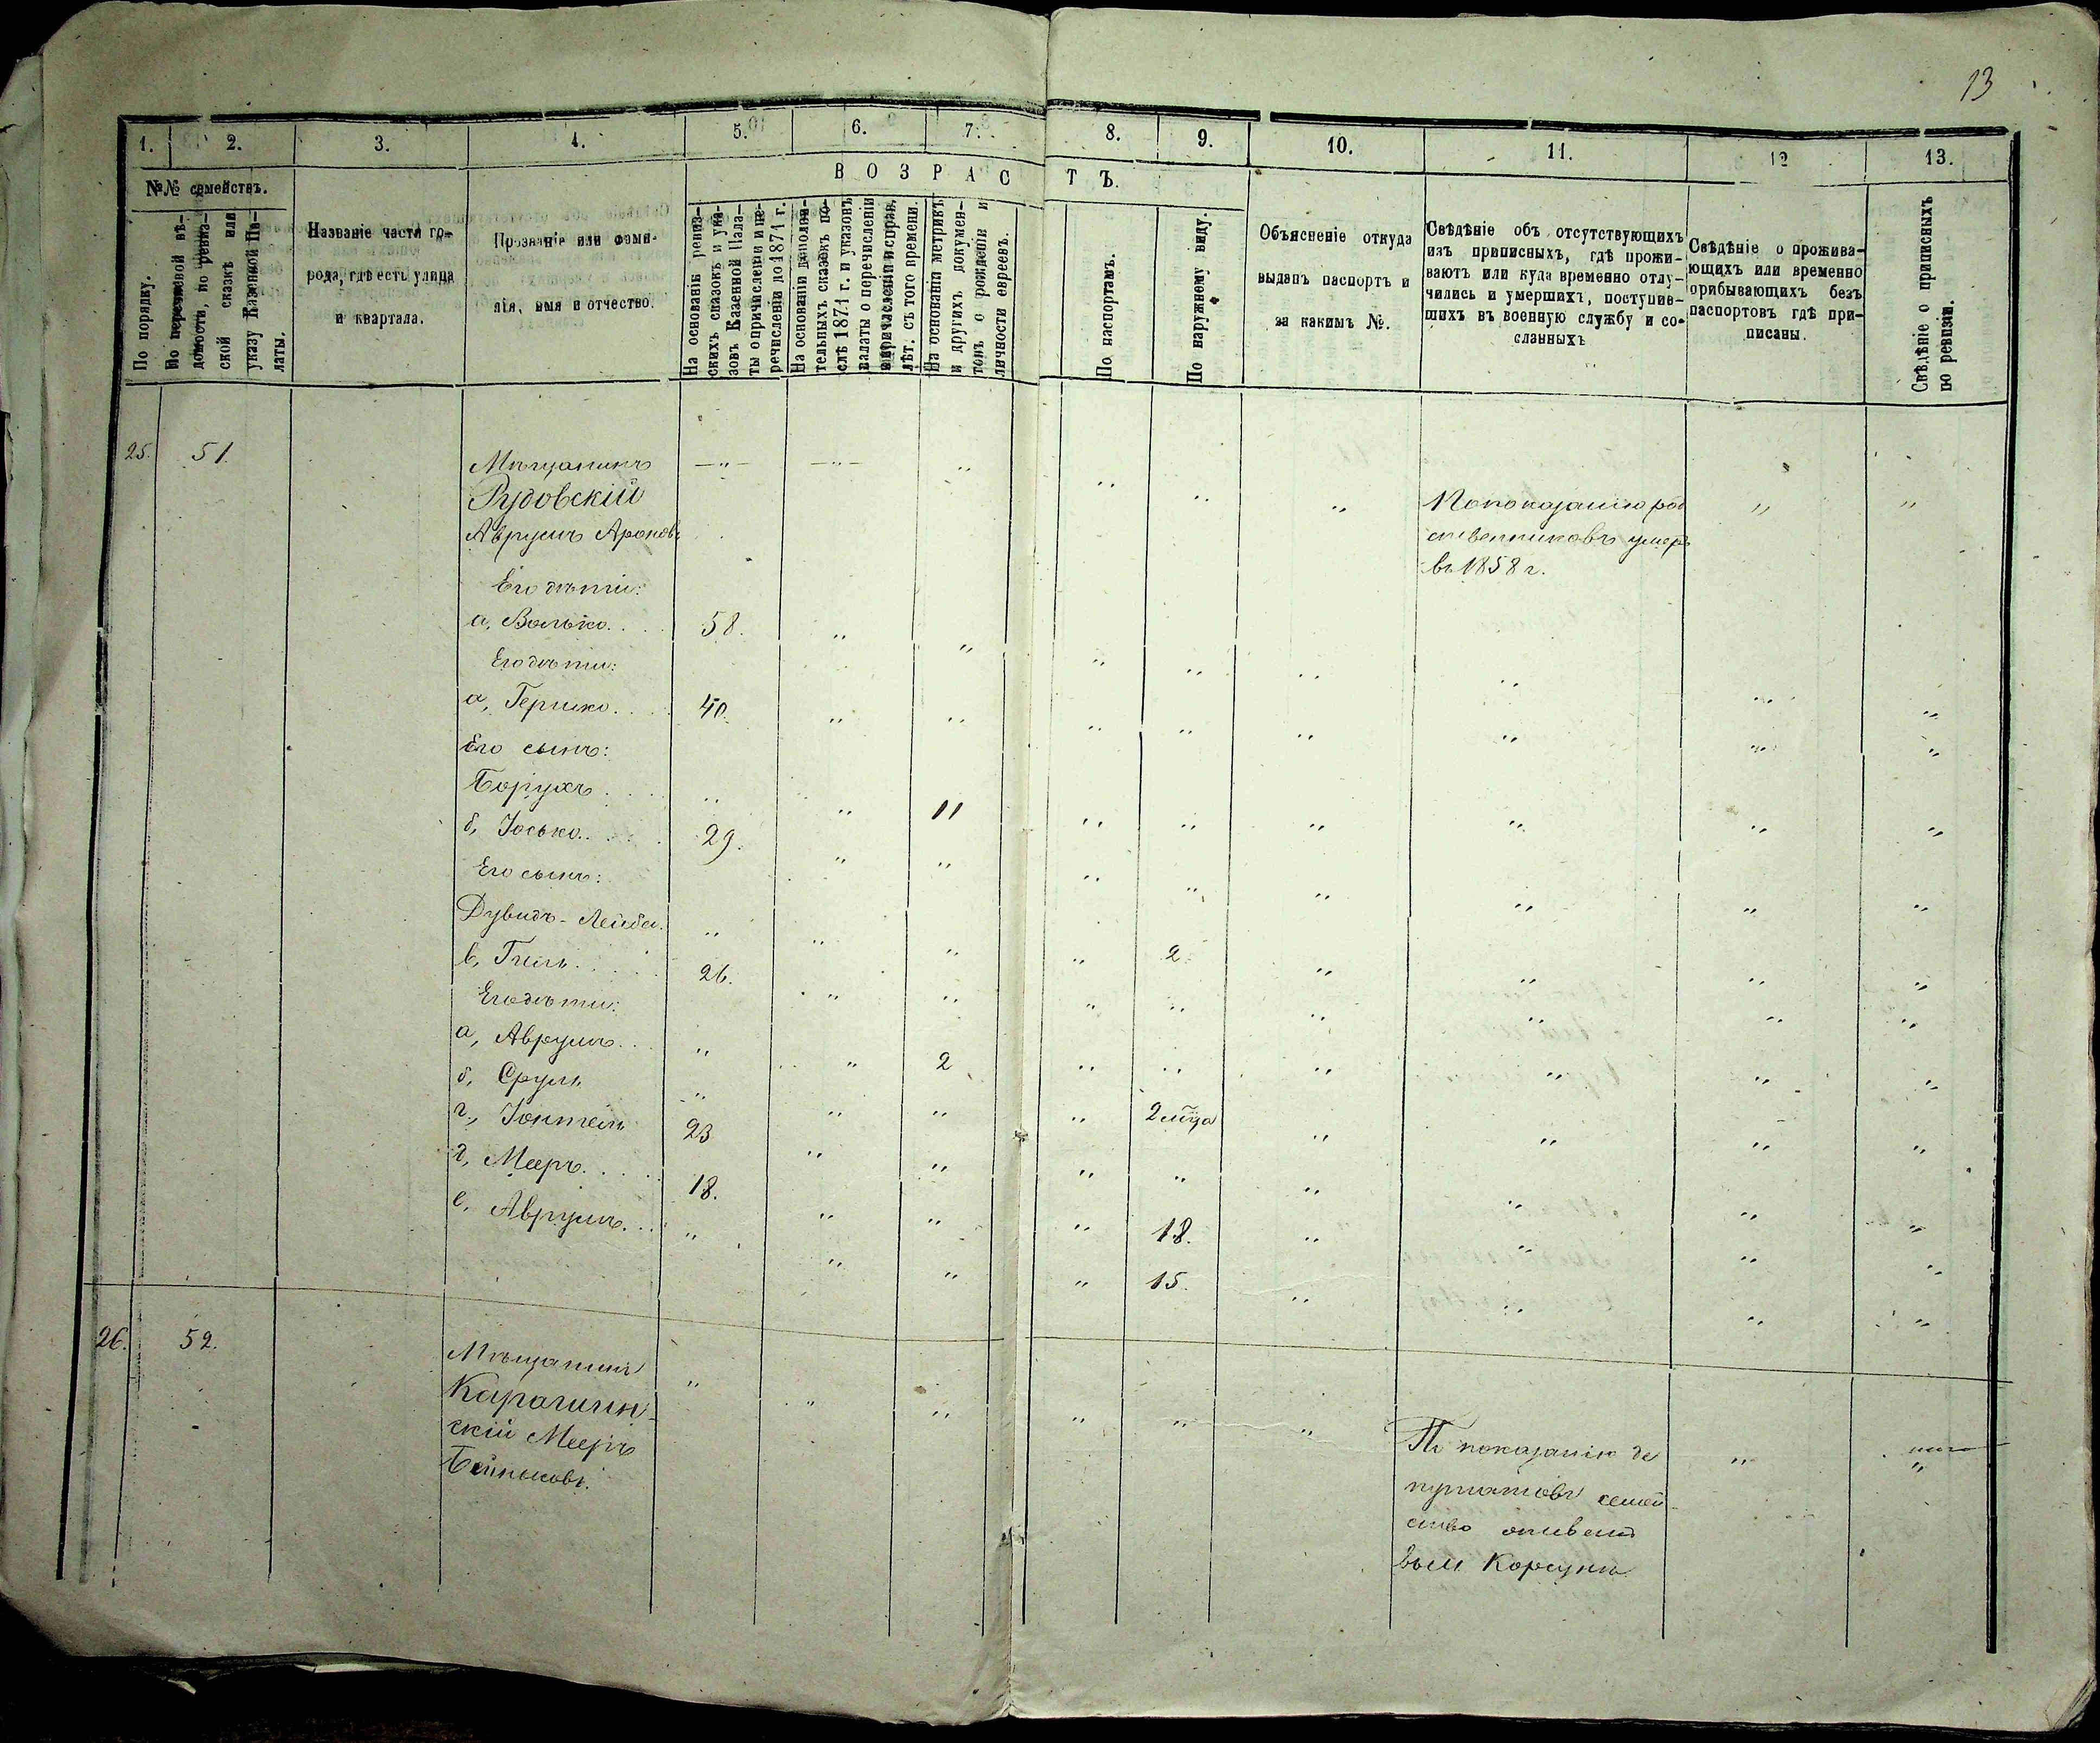 13
1. 2. 3. 4. 5. 6. 7. 8. 9. 10. 11. 12 13.
№№ семействъ.
В О З Р А С Т Ъ.
По порядку.
По перечневой вѣ-
домости, по ревиз-
ской сказкѣ или
указу Казенной Па-
латы.
Названіе части го-
рода, гдѣ есть улица
и квартала.
Прозваніе или фами-
лія, имя и отчество.
На основаніи ревиз-
скихъ сказокъ и ука-
зовъ Казенной Пала-
ты о причисленіи и пе-
речисленіи до 1871 г.
На основаніи дополни-
тельныхъ сказокъ по-
слѣ 1871 г. и указовъ
палаты о перечисленіи
и причисленіи и справ.
лѣт. съ того времени.
На основаніи метрикъ
и другихъ докумен-
товъ о рожденіи и
личности евреевъ.
По паспортамъ.
По наружному виду.
Объясненіе откуда
выданъ паспортъ и
за какимъ №.
Свѣдѣніе объ отсутствующихъ
изъ приписныхъ, гдѣ прожи-
ваютъ или куда временно отлу-
чились и умершихъ, поступив-
шихъ въ военную службу и со-
сланныхъ
Свѣдѣніе о прожива-
ющихъ или временно
прибывающихъ безъ
паспортовъ гдѣ при-
писаны.
Свѣдѣніе о приписныхъ
по ревизіи.
25. 51. Мѣщанинъ —"— —"— " " " " " "
Рудовскій По показанію род
Аврумъ Ароновъ ственниковъ умеръ
въ 1858 г.
Его дѣти:
а, Волько.... 58. " " " " " " " "
Его дѣти:
а, Гершко.... 40. " " " " " " " "
Его сынъ:
Борухъ.... " " 11 " " " " " "
б, Іосько.... 29. " " " " " " " "
Его сынъ:
Дувидъ-Лейба. " " " " 2. " " " "
в, Гиль..... 26. " " " " " " " "
Его дѣти:
а, Аврумъ... " " 2 " " " " " "
б, Сруль " " " " 2 мца " " " "
г, Іонтель 23 " " " " " " " "
д, Мееръ.... 18. " " " 18. " " " "
е, Аврумъ... " " " " 15. " " " "
26. 52. Мѣщанинъ " " " " " " " "
Карагинн- По показанію де
скій Мееръ путатовъ семей-
Бейньковъ. ство
Корсунъ